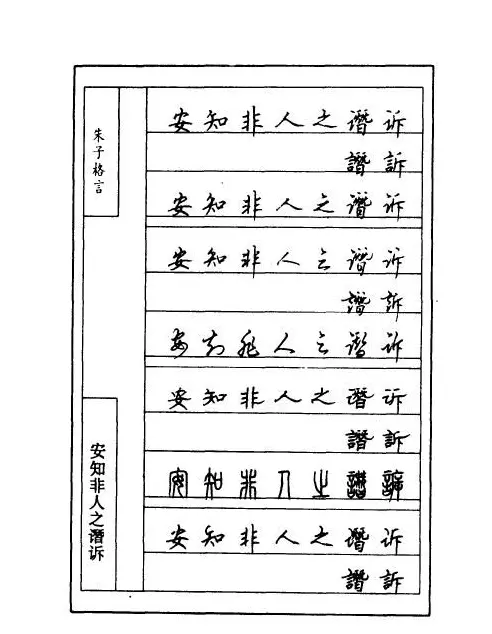 朱子格言
安知非人之谮诉
安知非人之谮诉
譖訴
安知非人之谮诉
安知非人之谮诉
譖訴
安知非人之谮诉
安知非人之谮诉
譖訴
安知非人之譖訴
安知非人之谮诉
譖訴